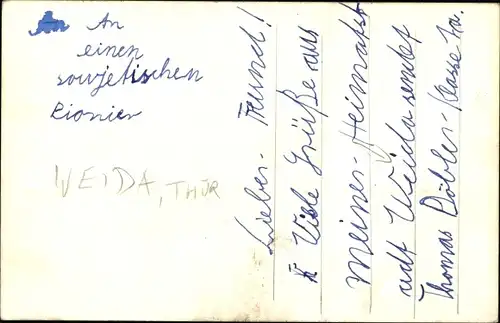 An
einen
sowjetischen
Pionier
WEIDA, THÜR
Lieber Freund!
Viele Grüße aus
meiner Heimatst
adt Weida sendet
Thomas Döbler Klasse 7a.